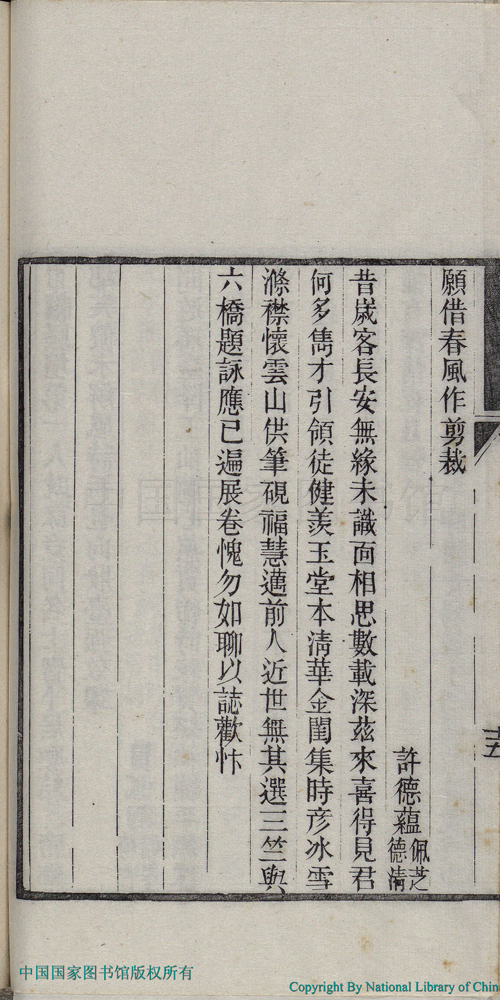 願借春風作剪裁
許德蘊佩芝德清
昔歲客長安無緣未識面相思數載深茲來喜得見君
何多雋才引領徒健羨玉堂本清華金閨集時彥冰雪
滌襟懷雲山供筆硯福慧邁前人近世無其選三竺與
六橋題詠應已遍展卷愧勿如聊以誌歡忭
十五
中国国家图书馆版权所有
Copyright By National Library of Chin